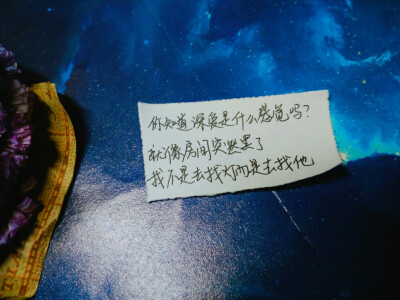 你知道深爱是什么感觉吗？
就像房间突然黑了
我不是去找灯而是去找他